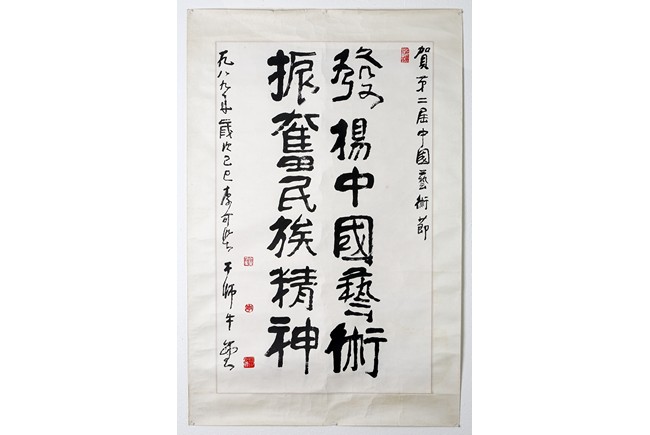 賀第二届中國藝術節
發揚中國藝術
振奮民族精神
一九八九年歲次己巳李可染於師牛堂